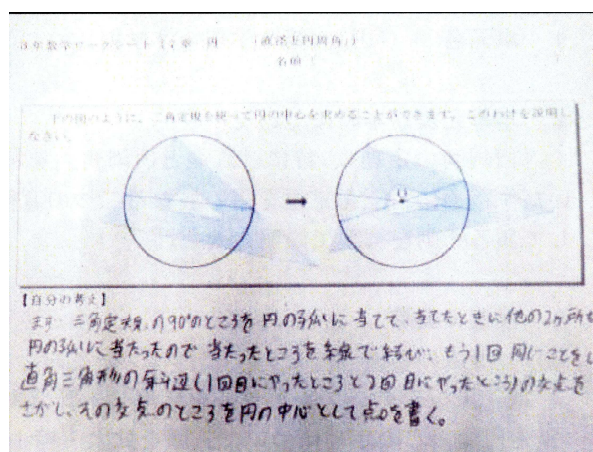 3年数学ワークシート 17章 円 (直径と円周角)
名前
下の図のように、三角定規を使って円の中心を求めることができます。このわけを説明し
なさい。
O
【自分の考え】
まず 三角定規の90°のところを円の弧に当てて、当てたときに他の2ヶ所も
円の弧に当たったので 当たったところを線で結び、もう1回同じことをし
直角三角形の斜辺(1回目にやったところと2回目にやったところ)の交点を
さがし、その交点のところを円の中心として点Oを書く。